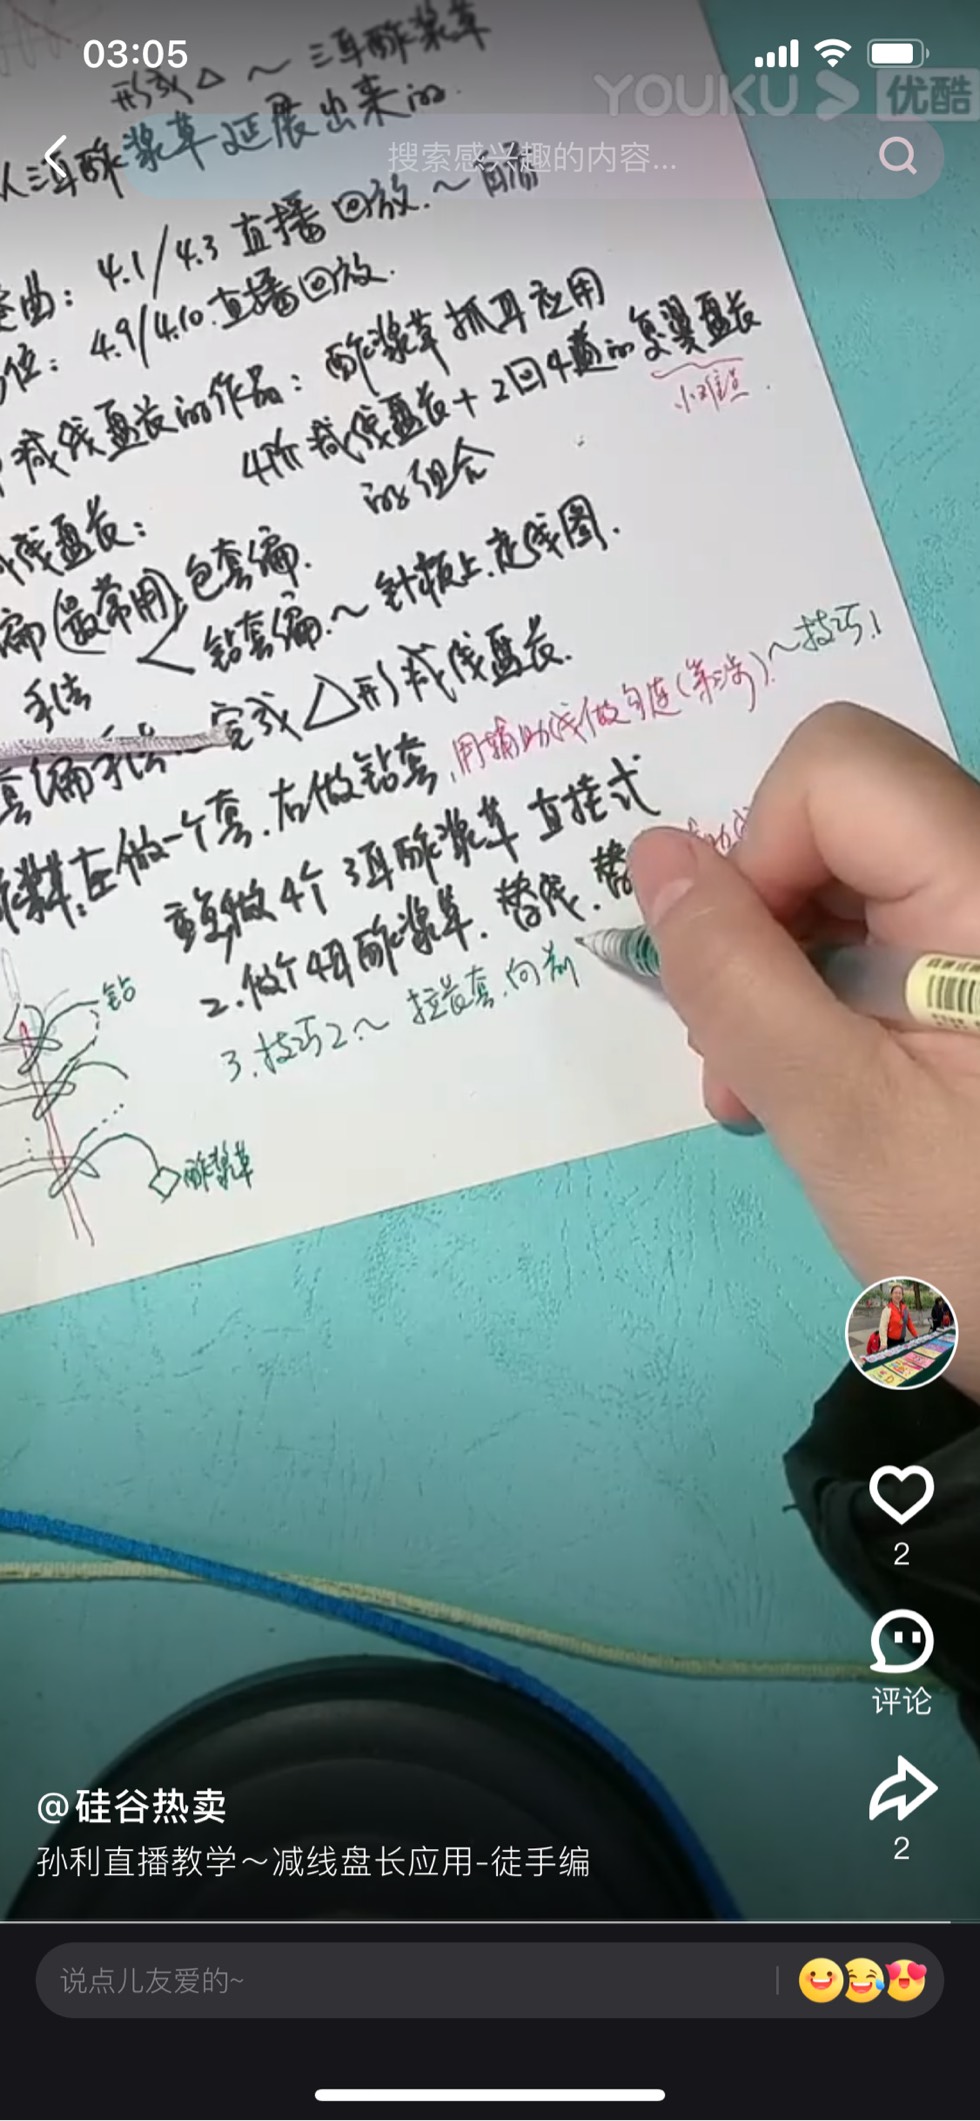 03:05
YOUKU 优酷
搜索感兴趣的内容...
形或△～三耳酢浆草
从三耳酢浆草延展出来的.
曲: 4.1/4.3 直播回放.～
位: 4.9/4.10.直播回放.
减线盘长的作品: 酢浆草抓耳应用
4所减线盘长+2回4道的复翼盘长
小难点.
的组合
线盘长:
编(最常用): 包套编.
钻套编.～针板上.走线图.
手法
套编手法.完或△形减线盘长.
左做一个套.右做钻套,用辅助线做勾连(第2步).～技巧!
重复做4个3耳酢浆草直挂式
2.做个4耳酢浆草.替线.替
3.技巧2～拉长套.向前
钻
酢浆草
2
评论
2
@硅谷热卖
孙利直播教学～减线盘长应用-徒手编
说点儿友爱的~